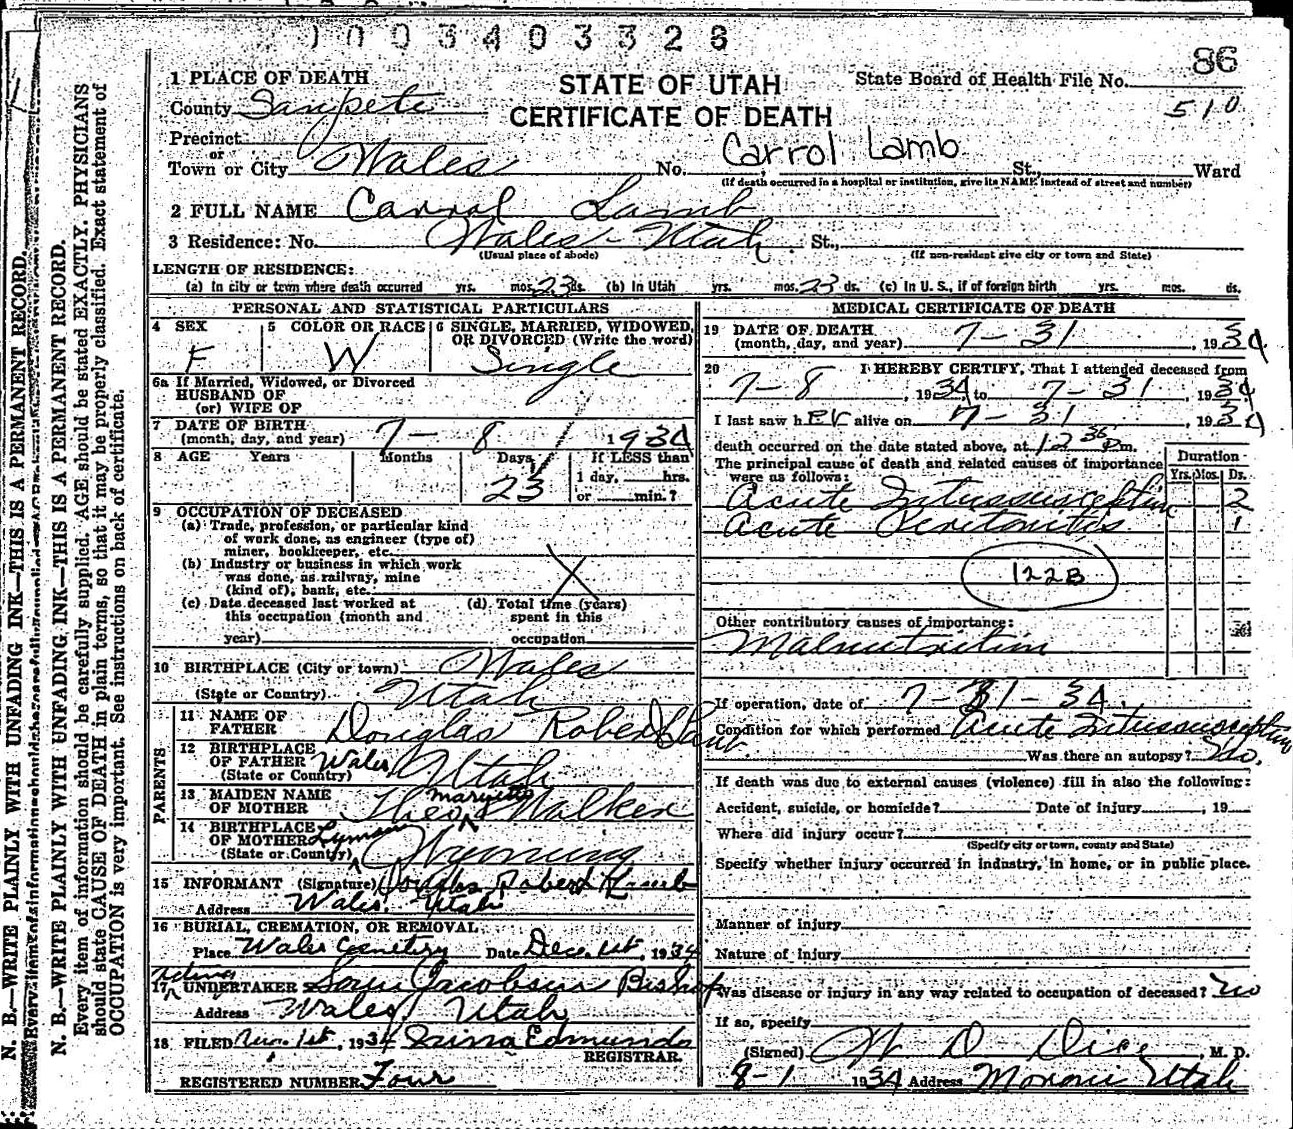 0003403328
86
1 PLACE OF DEATH
STATE OF UTAH
State Board of Health File No.
510
County Sanpete
CERTIFICATE OF DEATH
Precinct
or
Town or City Wales No. Carrol Lamb St., Ward
(If death occurred in a hospital or institution, give its NAME instead of street and number)
2 FULL NAME Carrol Lamb
3 Residence: No. Wales - Utah St.,
(Usual place of abode) (If non-resident give city or town and State)
LENGTH OF RESIDENCE:
(a) In city or town where death occurred yrs. mos. 23 ds. (b) In Utah yrs. mos. 23 ds. (c) In U. S., if of foreign birth yrs. mos. ds.
PERSONAL AND STATISTICAL PARTICULARS
4 SEX F
5 COLOR OR RACE W
6 SINGLE, MARRIED, WIDOWED,
OR DIVORCED (Write the word)
Single
6a If Married, Widowed, or Divorced
HUSBAND OF
(or) WIFE OF
7 DATE OF BIRTH
(month, day, and year) 7 - 8 1934
8 AGE Years Months Days If LESS than
23 1 day, hrs.
or min.?
9 OCCUPATION OF DECEASED
(a) Trade, profession, or particular kind
of work done, as engineer (type of)
miner, bookkeeper, etc.
(b) Industry or business in which work
was done, as railway, mine
(kind of), bank, etc.
(c) Date deceased last worked at
this occupation (month and
year)
(d) Total time (years)
spent in this
occupation
10 BIRTHPLACE (City or town) Wales
(State or Country) Utah
PARENTS
11 NAME OF
FATHER Douglas Robert Lamb
12 BIRTHPLACE
OF FATHER Wales
(State or Country) Utah
13 MAIDEN NAME
OF MOTHER Walker
14 BIRTHPLACE
OF MOTHER Lyman
(State or Country) Wyoming
15 INFORMANT (Signature) Douglas Robert Lamb
Address Wales, Utah
16 BURIAL, CREMATION, OR REMOVAL
Place Wales Cemetery Date 1st, 1934
17 UNDERTAKER Jacobson Bishop
Address Wales, Utah
18 FILED 1st, 1934 Edmunds
REGISTRAR.
REGISTERED NUMBER Four
MEDICAL CERTIFICATE OF DEATH
19 DATE OF DEATH
(month, day, and year) 7 - 31, 1934
20 I HEREBY CERTIFY, That I attended deceased from
7 - 8, 1934, to 7 - 31, 1934
I last saw her alive on 7 - 31, 1934
death occurred on the date stated above, at 12 30 P m.
The principal cause of death and related causes of importance
were as follows:
Duration
Yrs. Mos. Ds.
Acute Intussusception 2
Acute Peritonitis 1
122B
Other contributory causes of importance:
Malnutrition
If operation, date of 7-31-34
Condition for which performed Acute Intussusception
Was there an autopsy? No.
If death was due to external causes (violence) fill in also the following:
Accident, suicide, or homicide? Date of injury, 19
Where did injury occur?
(Specify city or town, county and State)
Specify whether injury occurred in industry, in home, or in public place.
Manner of injury
Nature of Injury
Was disease or injury in any way related to occupation of deceased? No
If so, specify
(Signed) , M. D.
8-1 1934 Address Moroni Utah
N. B.—WRITE PLAINLY WITH UNFADING INK—THIS IS A PERMANENT RECORD.
N. B.—WRITE PLAINLY WITH UNFADING INK—THIS IS A PERMANENT RECORD.
Every item of information should be carefully supplied. AGE should be stated EXACTLY. PHYSICIANS
should state CAUSE OF DEATH in plain terms, so that it may be properly classified. Exact statement of
OCCUPATION is very important. See instructions on back of certificate.